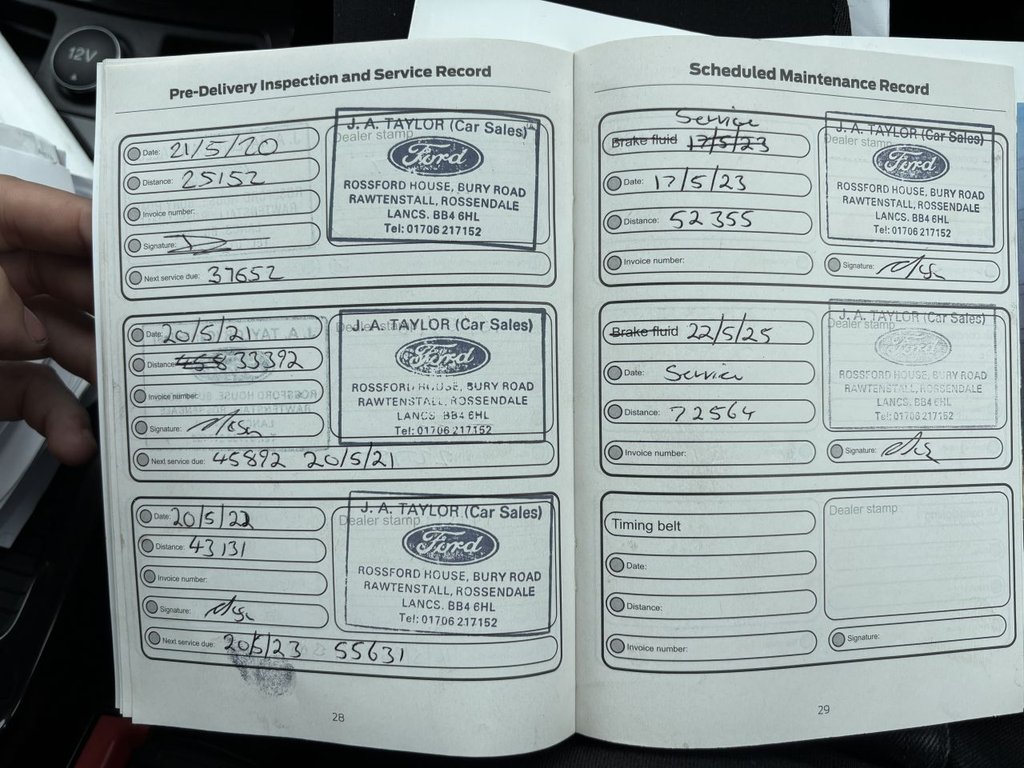 12V
Pre-Delivery Inspection and Service Record
Date: 21/5/20
Distance: 25152
Invoice number:
Signature:
Next service due: 37652
Dealer stamp
J. A. TAYLOR (Car Sales)
Ford
ROSSFORD HOUSE, BURY ROAD
RAWTENSTALL, ROSSENDALE
LANCS. BB4 6HL
Tel: 01706 217152
Date: 20/5/21
Distance: 458 33392
Invoice number:
Signature:
Next service due: 45892 20/5/21
Dealer stamp
J. A. TAYLOR (Car Sales)
Ford
ROSSFORD HOUSE, BURY ROAD
RAWTENSTALL, ROSSENDALE
LANCS BB4 6HL
Tel: 01706 217152
Date: 20/5/22
Distance: 43131
Invoice number:
Signature:
Next service due: 20/5/23 55631
Dealer stamp
J. A. TAYLOR (Car Sales)
Ford
ROSSFORD HOUSE, BURY ROAD
RAWTENSTALL, ROSSENDALE
LANCS. BB4 6HL
Tel: 01706 217152
28
Scheduled Maintenance Record
Service
Brake fluid 17/5/23
Date: 17/5/23
Distance: 52355
Invoice number:
Dealer stamp
J. A. TAYLOR (Car Sales)
Ford
ROSSFORD HOUSE, BURY ROAD
RAWTENSTALL, ROSSENDALE
LANCS. BB4 6HL
Tel: 01706 217152
Signature:
Brake fluid 22/5/25
Date: Service
Distance: 72564
Invoice number:
Dealer stamp
J. A. TAYLOR (Car Sales)
Ford
ROSSFORD HOUSE, BURY ROAD
RAWTENSTALL, ROSSENDALE
LANCS. BB4 6HL
Tel: 01706 217152
Signature:
Timing belt
Date:
Distance:
Invoice number:
Dealer stamp
Signature:
29